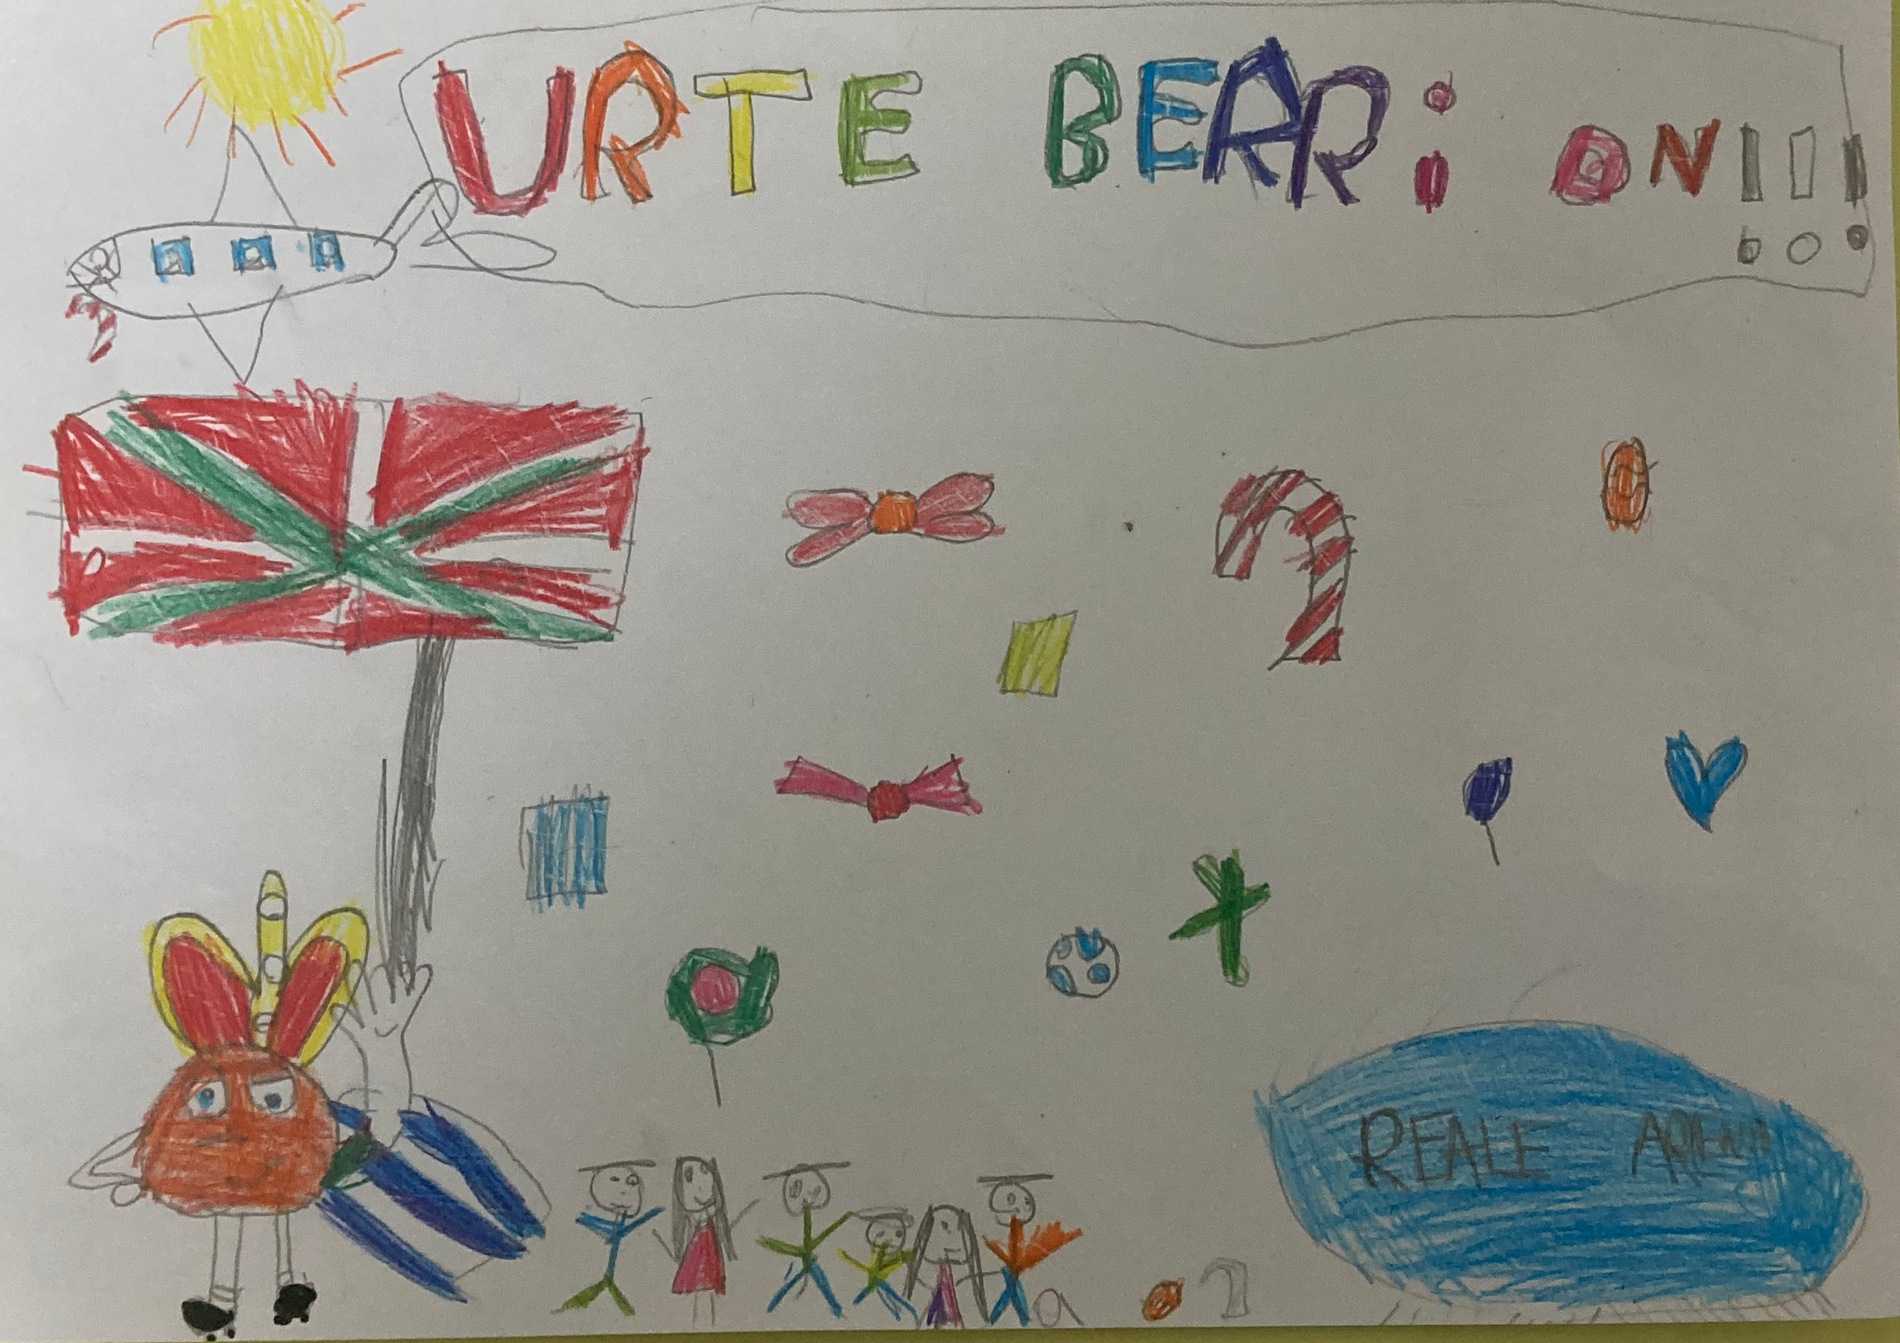 URTE BERRi ON!!!
REALE